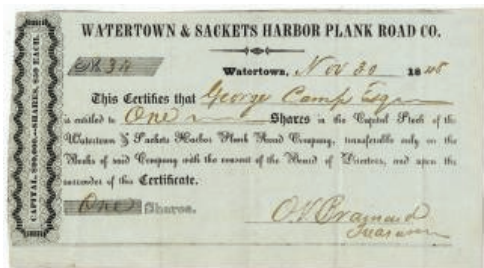 WATERTOWN & SACKETS HARBOR PLANK ROAD CO.
Watertown, Nov 30 1848
This Certifies that George Camp Esqr
is entitled to One Shares in the Capital Stock of the
Watertown & Sackets Harbor Plank Road Company, transferable only on the
Books of said Company with the consent of the Board of Directors, and upon the
surrender of this Certificate.
One Shares.
Treasurer
CAPITAL, $40,000.—SHARES, $50 EACH.